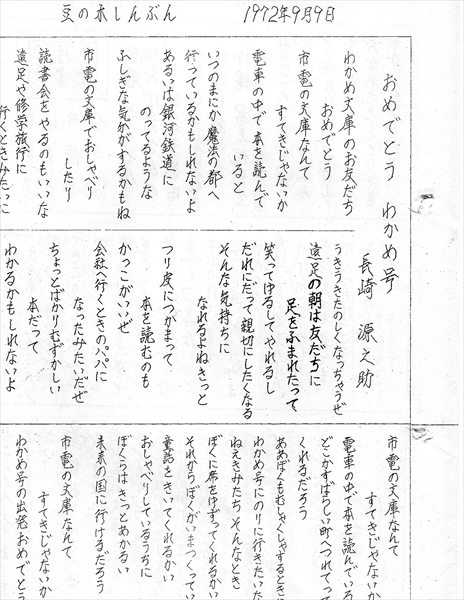 豆の木しんぶん 1972年9月9日
おめでとう わかめ号
長崎 源之助
わかめ文庫のお友だち
おめでとう
市電の文庫なんて
すてきじゃないか
電車の中で本を読んで
いると
いつのまにか魔法の都へ
行っているかもしれないよ
あるいは銀河鉄道に
のってるような
ふしぎな気がするかもね
市電の文庫でおしゃべり
したり
読書会をやるのもいいな
遠足や修学旅行に
行くときみたいに
うきうきたのしくなっちゃうぜ
遠足の朝は友だちに
足をふまれたって
笑ってゆるしてやれるし
だれにだって親切にしたくなる
そんな気持ちに
なれるよねきっと
つり皮につかまって
本を読むのも
かっこがいいぜ
会社へ行くときのパパに
なったみたいだぜ
ちょっとばかりむずかしい
本だって
わかるかもしれないよ
市電の文庫なんて
すてきじゃないか
電車の中で本を読んでいる
どこかすばらしい町へつれてって
くれるだろう
ああぼくもむしゃくしゃするとき
わかめ号にのりに行きたいな
ねえきみたちそんなとき
ぼくに席をゆずってくれるかい
それからぼくがいまつくってい
童話をきいてくれるかい
おしゃべりしているうちに
ぼくらはきっとあかるい
未来の国に行けるだろう
市電の文庫なんて
すてきじゃないか
わかめ号の出発おめでとう